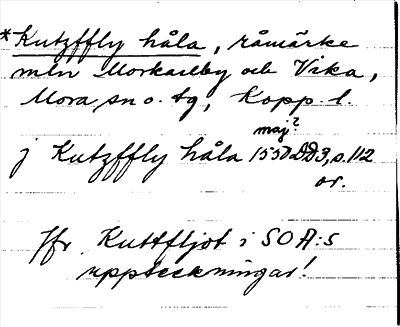 *Kutzffly håla, råmärke
mln Morkarlby och Vika,
Mora sn o. tg, Kopp. l.
maj?
j Kutzffly håla 1550 DD3, s. 112
or.
Jfr Kuttfljot i SOA:s
uppteckningar!